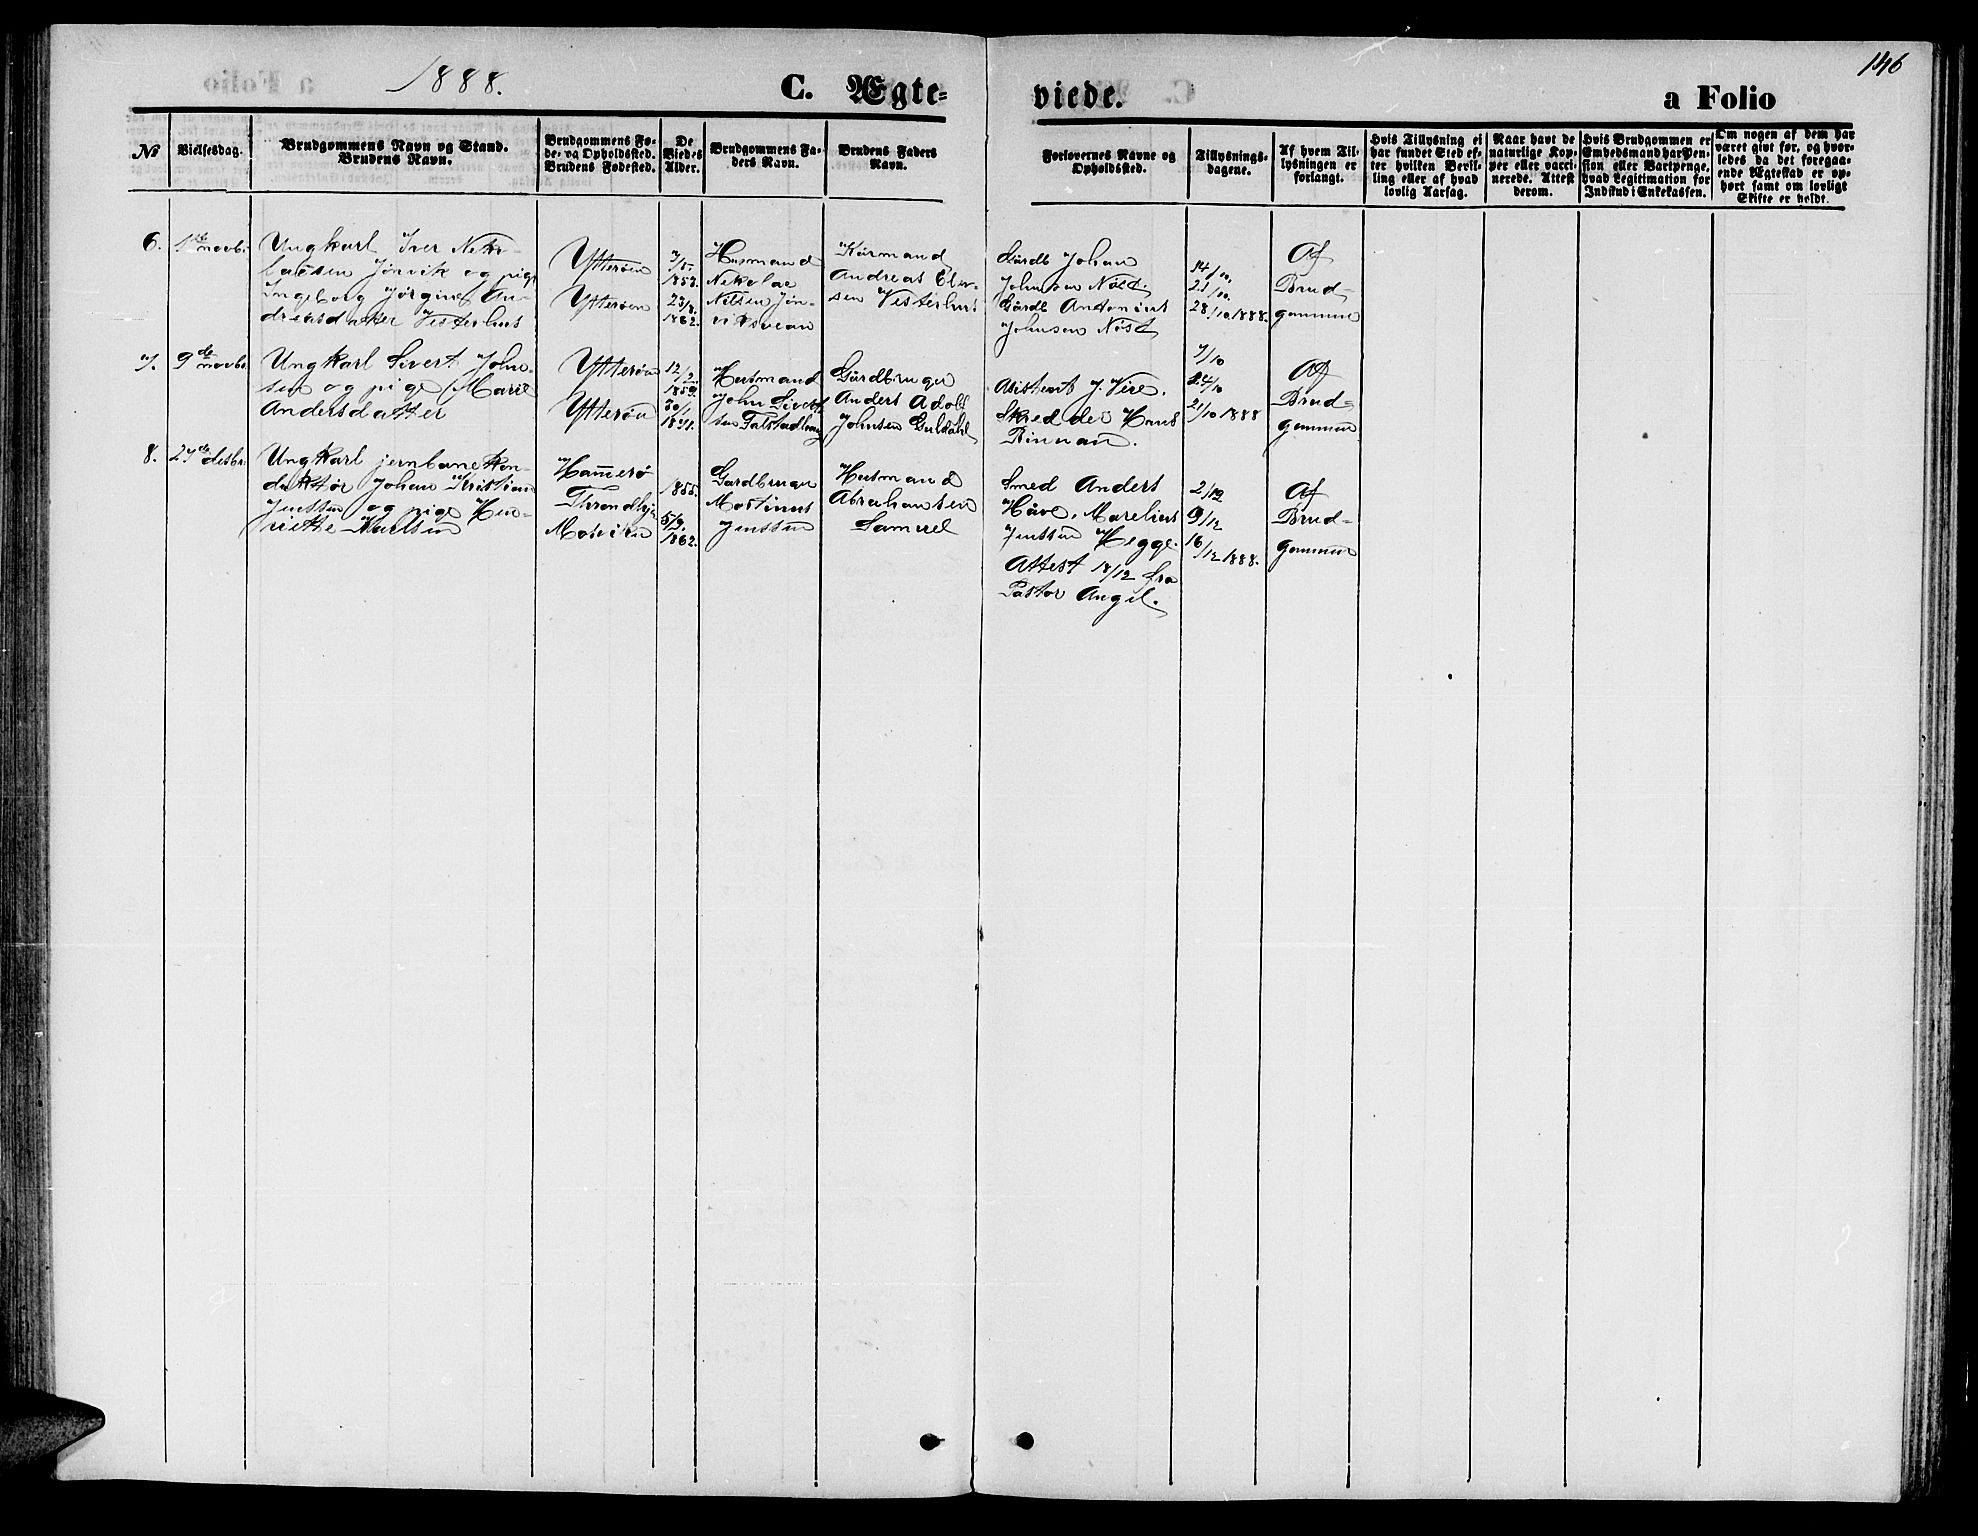 1888.
C. Ægte-
viede.
a Folio
146
No
Vielsesdag.
Brudgommens Navn og Stand.
Brudens Navn.
Brudgommens Fø-
de- og Opholdssted.
Brudens Fødested.
De
Viedes
Alder.
Brudgommens Fa-
ders Navn.
Brudens Faders
Navn.
Forlovernes Navne og
Opholdssted.
Tillysnings-
dagene.
Af hvem Til-
lysningen er
forlangt.
Hvis Tillysning ei
har fundet Sted ef-
ter hvilken Bevil-
ling eller af hvad
lovlig Aarsag.
Naar havt de
naturlige Kop-
per eller vacci-
nerede. Attest
derom.
Hvis Brudgommen er
Embedsmand har Pen-
sion eller Vartpenge,
hvad Legitimation for
Indskud i Enkekassen.
Om nogen af dem har
været givt før, og hvor-
ledes da det foregaa-
ende Ægteskab er op-
hørt samt om lovligt
Skifte er holdt.
6.
1ste novbr.
Ungkarl Iver Neko-
laisen Jørvik og pige
Ingeborg Jørgine An-
dreasdatter Vesterhus
Ytterøen
Ytterøen
1853.
23/8.
1862.
Husmand
Nekolai
Nilsen Jør-
viksvean
Kårmand
Andreas
Vesterhus
Gårdb Johan
Johnsen Nøst.
Gårdb Antonius
Johnsen Nøst
14/10.
21/10.
28/10.1888.
Af
Brud-
gommen
7.
9de novbr.
Ungkarl Sivert John-
sen og pige Marie
Andersdatter
Ytterøen
Ytterøen
12/2.
1859.
30/1.
Husmand
John Sivert
sen Falstadhaug
Gårdbruger
Anders Adolf
Johnsen Guldahl
Asistent J. Vere.
Skredder Hans
Rinnan.
7/10
24/10
21/10 1888
Af
Brud-
gommen
8.
27de desbr.
Ungkarl jernbanekon-
duktør Johan Kristian
Jenssen og pige Hen-
riette Karlsen
Hamerø
Throndhjem
Mosviken
1855.
5/9.
1862.
Gardbruger
Mostinus
Jenssen
Husmand
Abrahamsen
Samuel
Smed Anders
Håve, Marelius
Jenssen Hegge.
Attest 18/12 fra
Pastor Angel.
2/12
9/12
16/12 1888.
Af
Brud-
gommen